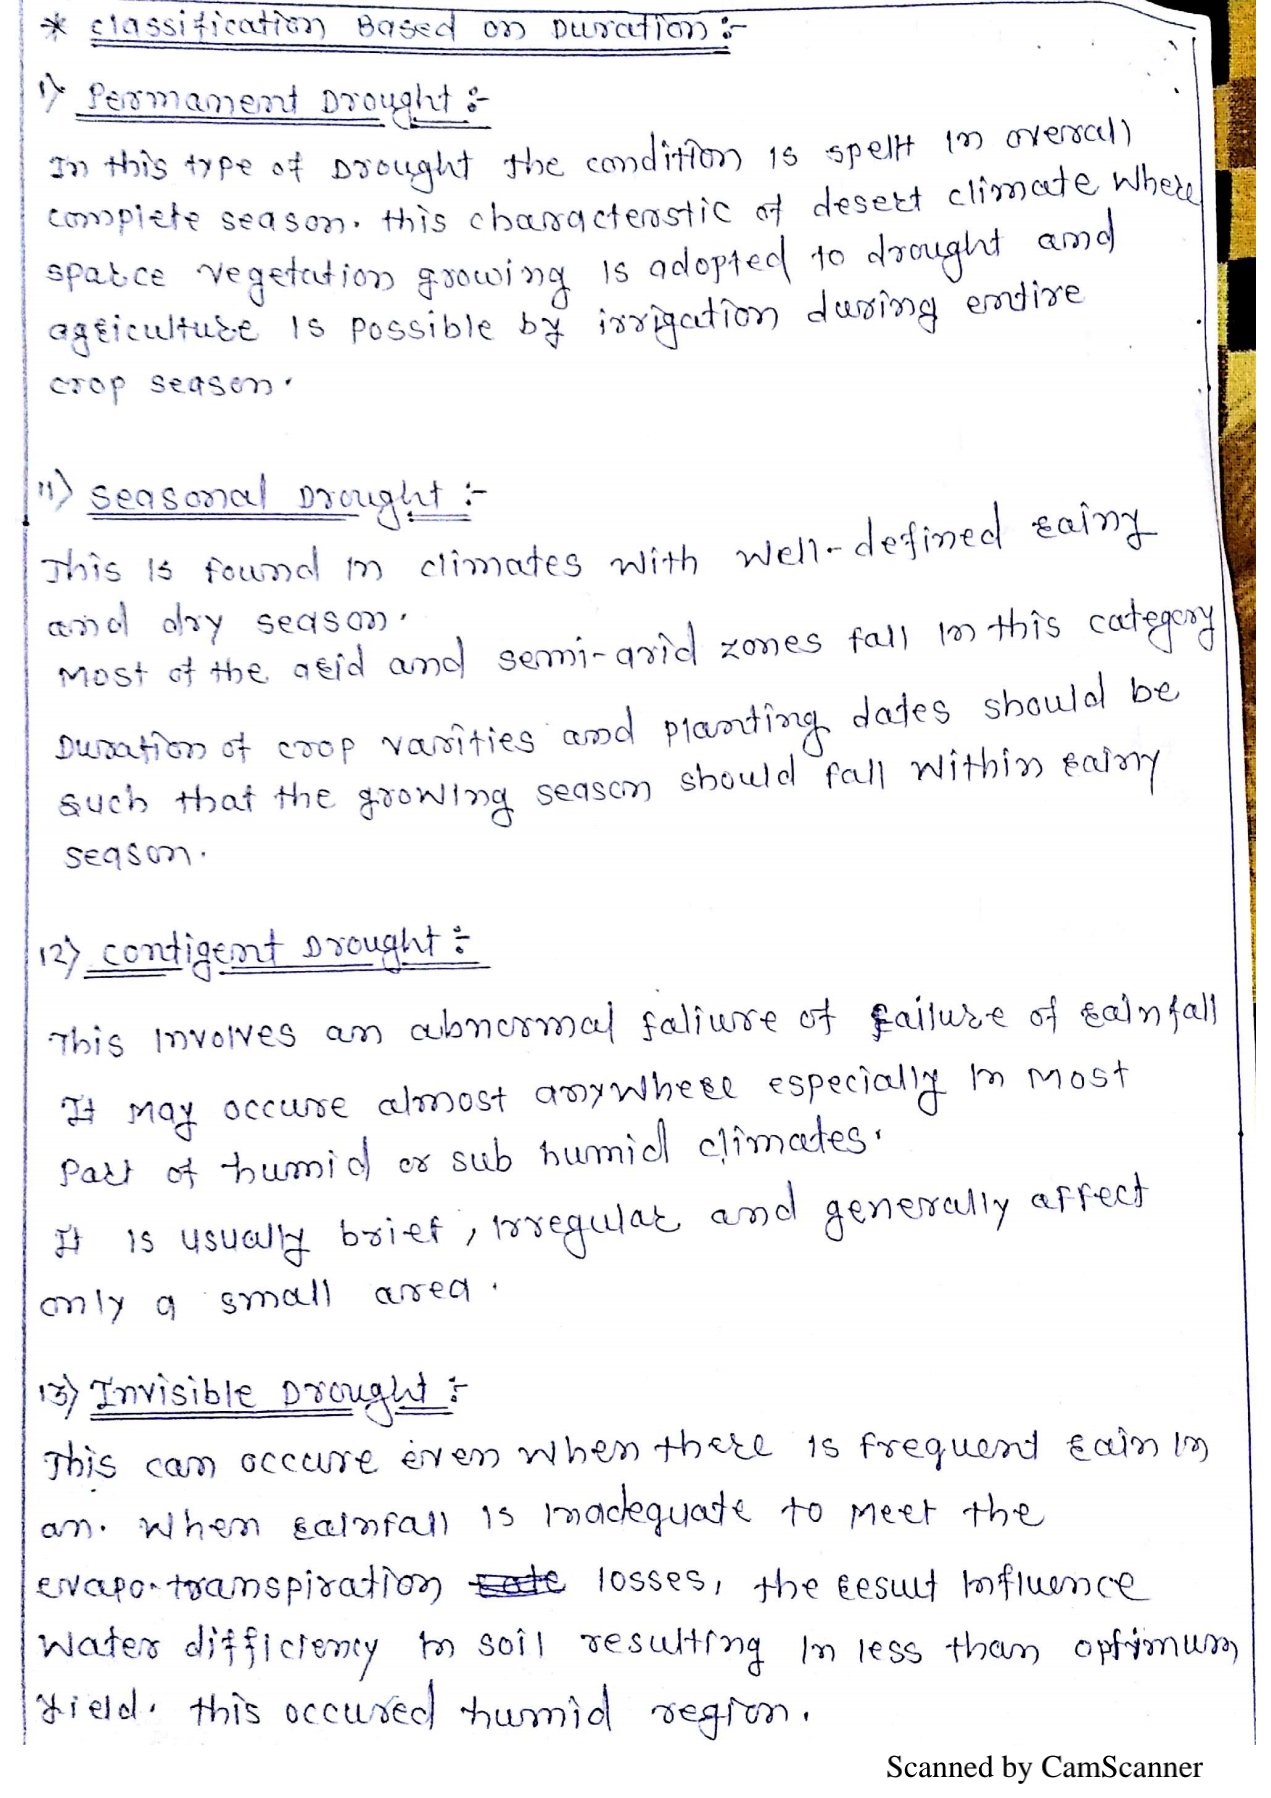 * Classification Based on Duration :-
1) Permanent Drought :-
In this type of Drought the condition is spellt in overall
complete season. this characterstic of desert climate where
sparce vegetation growing is adopted to drought and
agriculture is possible by irrigation during entire
crop season.
11) Seasonal Drought :-
This is found in climates with well-defined rainy
and dry season.
Most of the arid and semi-arid zones fall in this category
Duration of crop varities and planting dates should be
such that the growing season should fall within rainy
season.
12) Contigent Drought :-
This involves an abnormal faliure of failure of rainfall
It may occure almost anywhere especially in most
part of humid or sub humid climates.
It is usually brief, irregular and generally affect
only a small area.
13) Invisible Drought :-
This can occure even when there is frequent rain in
an. when rainfall is inadequate to meet the
evapo-transpiration losses, the result influence
water difficiency in soil resulting in less than optimum
yield. this occured humid region.
Scanned by CamScanner